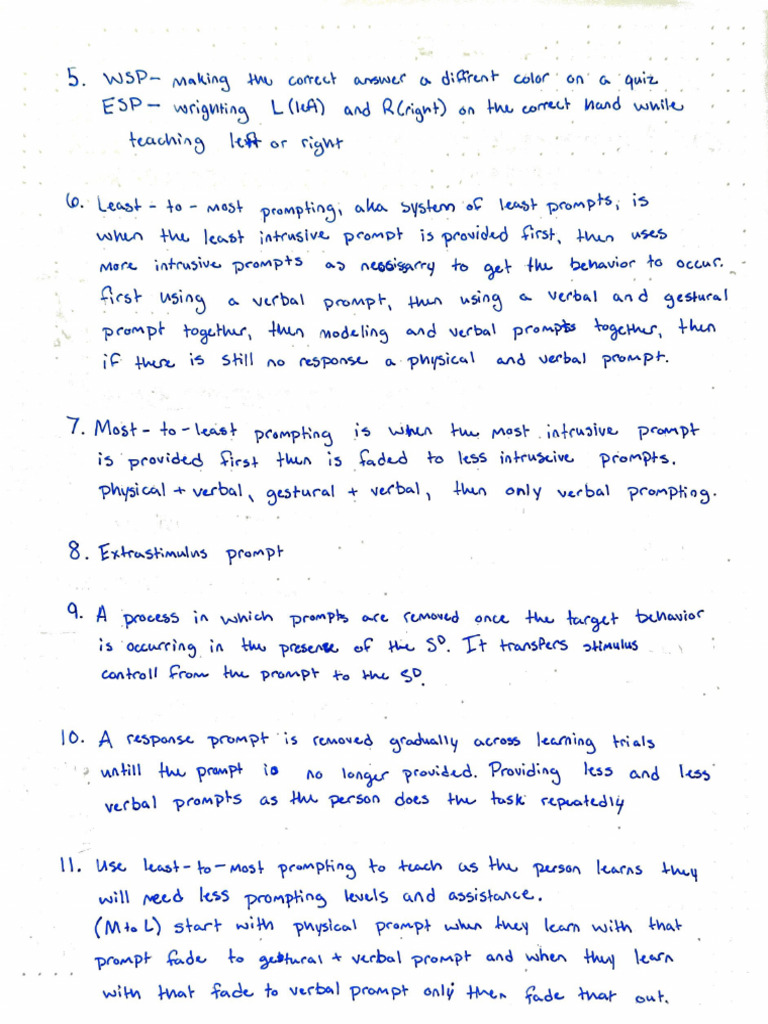 5. WSP- making the correct answer a different color on a quiz
ESP - wrighting L (left) and R(right) on the correct hand while
teaching left or right
6. Least-to-most prompting, aka system of least prompts, is
when the least intrusive prompt is provided first, then uses
more intrusive prompts as nessisarry to get the behavior to occur.
first using a verbal prompt, then using a verbal and gestural
prompt together, then modeling and verbal prompts together, then
if there is still no response a physical and verbal prompt.
7. Most-to-least prompting is when the most intrusive prompt
is provided first then is faded to less intruscive prompts.
physical + verbal, gestural + verbal, then only verbal prompting.
8. Extrastimulus prompt
9. A process in which prompts are removed once the target behavior
is occurring in the presense of the SD. It transfers stimulus
controll from the prompt to the SD.
10. A response prompt is removed gradually across learning trials
untill the prompt is no longer provided. Providing less and less
verbal prompts as the person does the task repeatedly
11. Use least-to-most prompting to teach as the person learns they
will need less prompting levels and assistance.
(M to L) start with physical prompt when they learn with that
prompt fade to gestural + verbal prompt and when they learn
with that fade to verbal prompt only then fade that out.